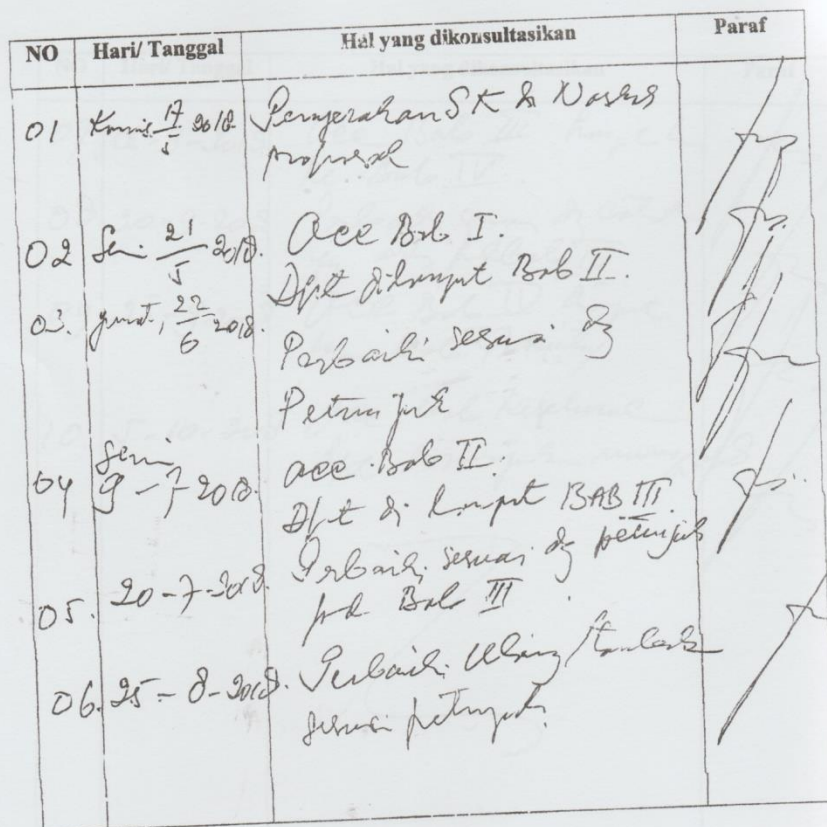 NO Hari/ Tanggal Hal yang dikonsultasikan Paraf
01 Kamis 17/5 2018 Penyerahan SK & Naskah
proposal
02 Sen. 21/5 2018. Acc Bab I.
Dpt dilanjut Bab II.
03. Jumat, 22/6 2018. Perbaiki sesuai dg
Petunjuk
04 Senin 9-7-2018. acc Bab II.
Dpt di lanjut BAB III
05. 20-7-2018. Perbaiki sesuai dg petunjuk
pd Bab III
06. 25-8-2018. Perbaiki Ulang
sesuai petunjuk